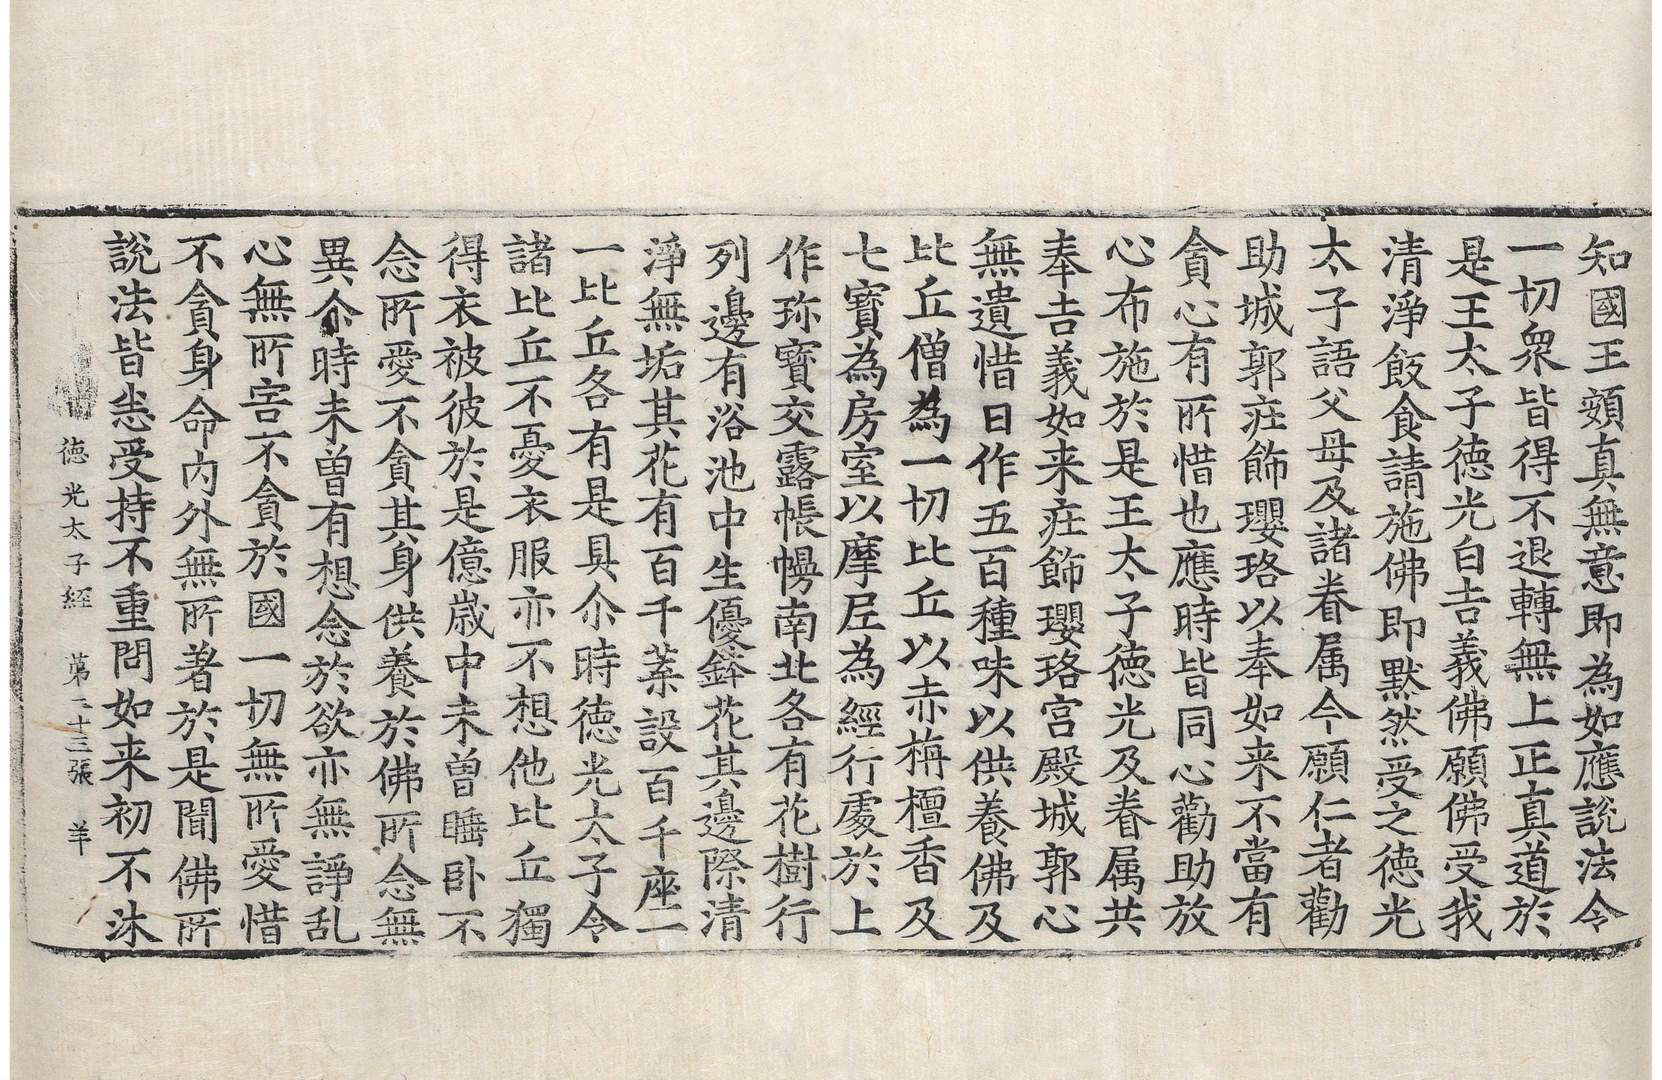 知國王頞真無意即為如應說法令
一切衆皆得不退轉無上正真道於
是王太子德光白吉義佛願佛受我
清淨飯食請施佛即默然受之德光
太子語父母及諸眷属今願仁者勸
助城郭疘飾瓔珞以奉如来不當有
貪心有所惜也應時皆同心勸助放
心布施於是王太子德光及眷属共
奉吉義如来疘飾瓔珞宫殿城郭心
無遺惜日作五百種味以供養佛及
比丘僧為一切比丘以赤栴檀香及
七寶為房室以摩尼為經行處於上
作珎寶交露帳幔南北各有花樹行
列邊有浴池中生優鉢花其邊際清
淨無垢其花有百千葉設百千座二
一比丘各有是具尒時德光太子令
諸比丘不憂衣服亦不想他比丘獨
得衣被彼於是億歲中未曽睡卧不
念所愛不貪其身供養於佛所念無
異尒時未曽有想念於欲亦無諍乱
心無所害不貪於國一切無所愛惜
不貪身命内外無所著於是聞佛所
說法皆悉受持不重問如来初不沐
德光太子經 苐二十三張 羊